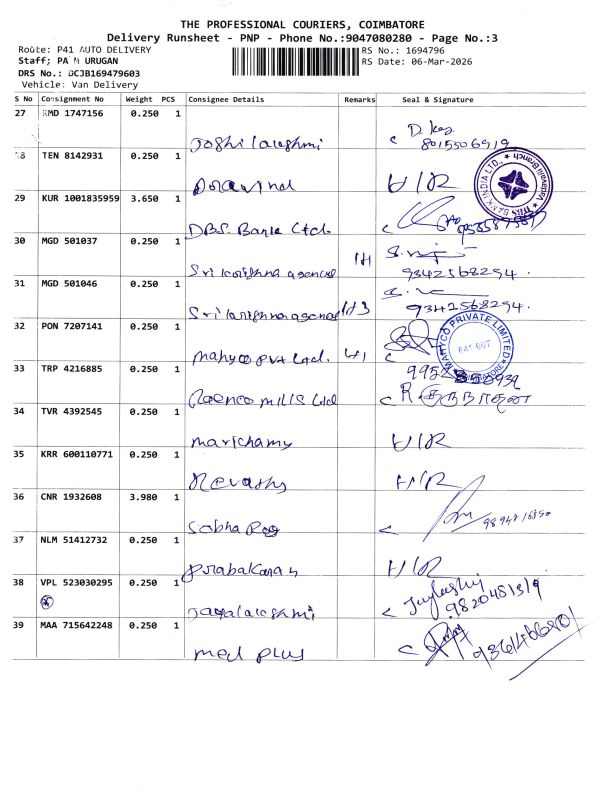 THE PROFESSIONAL COURIERS, COIMBATORE
Delivery Runsheet - PNP - Phone No.:9047080280 - Page No.:3
Route: P41 AUTO DELIVERY
RS No.: 1694796
Staff; PA URUGAN
RS Date: 06-Mar-2026
DRS No.: DCJB169479603
Vehicle: Van Delivery
S No Consignment No Weight PCS Consignee Details Remarks Seal & Signature
27 KMD 1747156 0.250 1 Joshi lakshmi
8015506919
28 TEN 8142931 0.250 1 Aravind H/R
29 KUR 1001835959 3.650 1 DBS. Bank Ltd
DBS BANK INDIA LTD.,
30 MGD 501037 0.250 1 Sri krishna agencies
9342568294.
31 MGD 501046 0.250 1 Sri krishna agencies H3
9342568294.
32 PON 7207141 0.250 1 Mahyco Pvt Ltd. H1
MAHYCO PRIVATE LIMITED
COIMBATORE
33 TRP 4216885 0.250 1 Mills Ltd
34 TVR 4392545 0.250 1 Marichamy H/R
35 KRR 600110771 0.250 1 Revathy H/R
36 CNR 1932608 3.980 1 Sobha Rag
37 NLM 51412732 0.250 1 Prabakaran H/R
38 VPL 523030295 0.250 1 Jayalakshmi
9820481319
39 MAA 715642248 0.250 1 Med plus